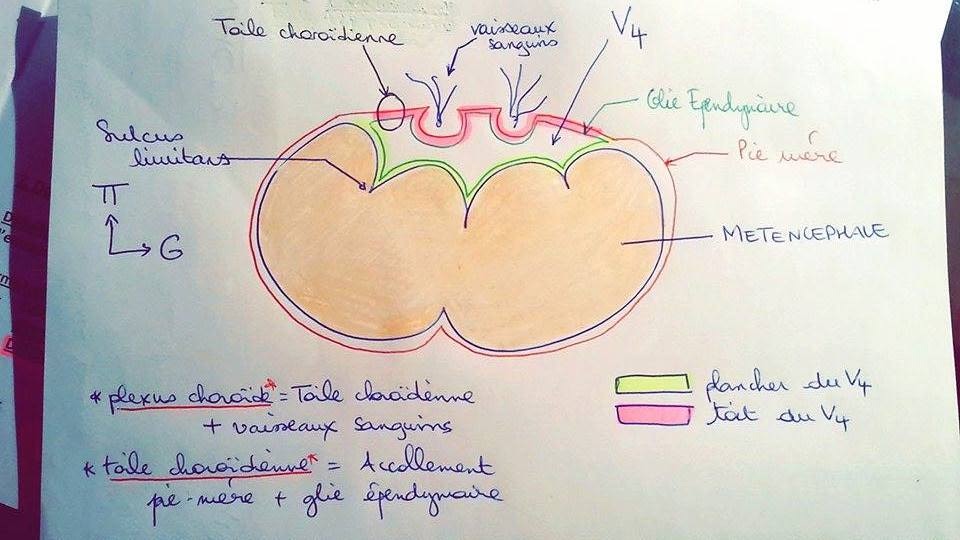 Toile choroïdienne
vaisseaux
sanguins
V4
Glie Ependymaire
Pie mère
Sulcus
limitans
Π
G
METENCEPHALE
* plexus choroïde* = Toile choroïdienne
+ vaisseaux sanguins
* toile choroïdienne* = Accollement
pie-mère + glie épendymaire
plancher du V4
toit du V4